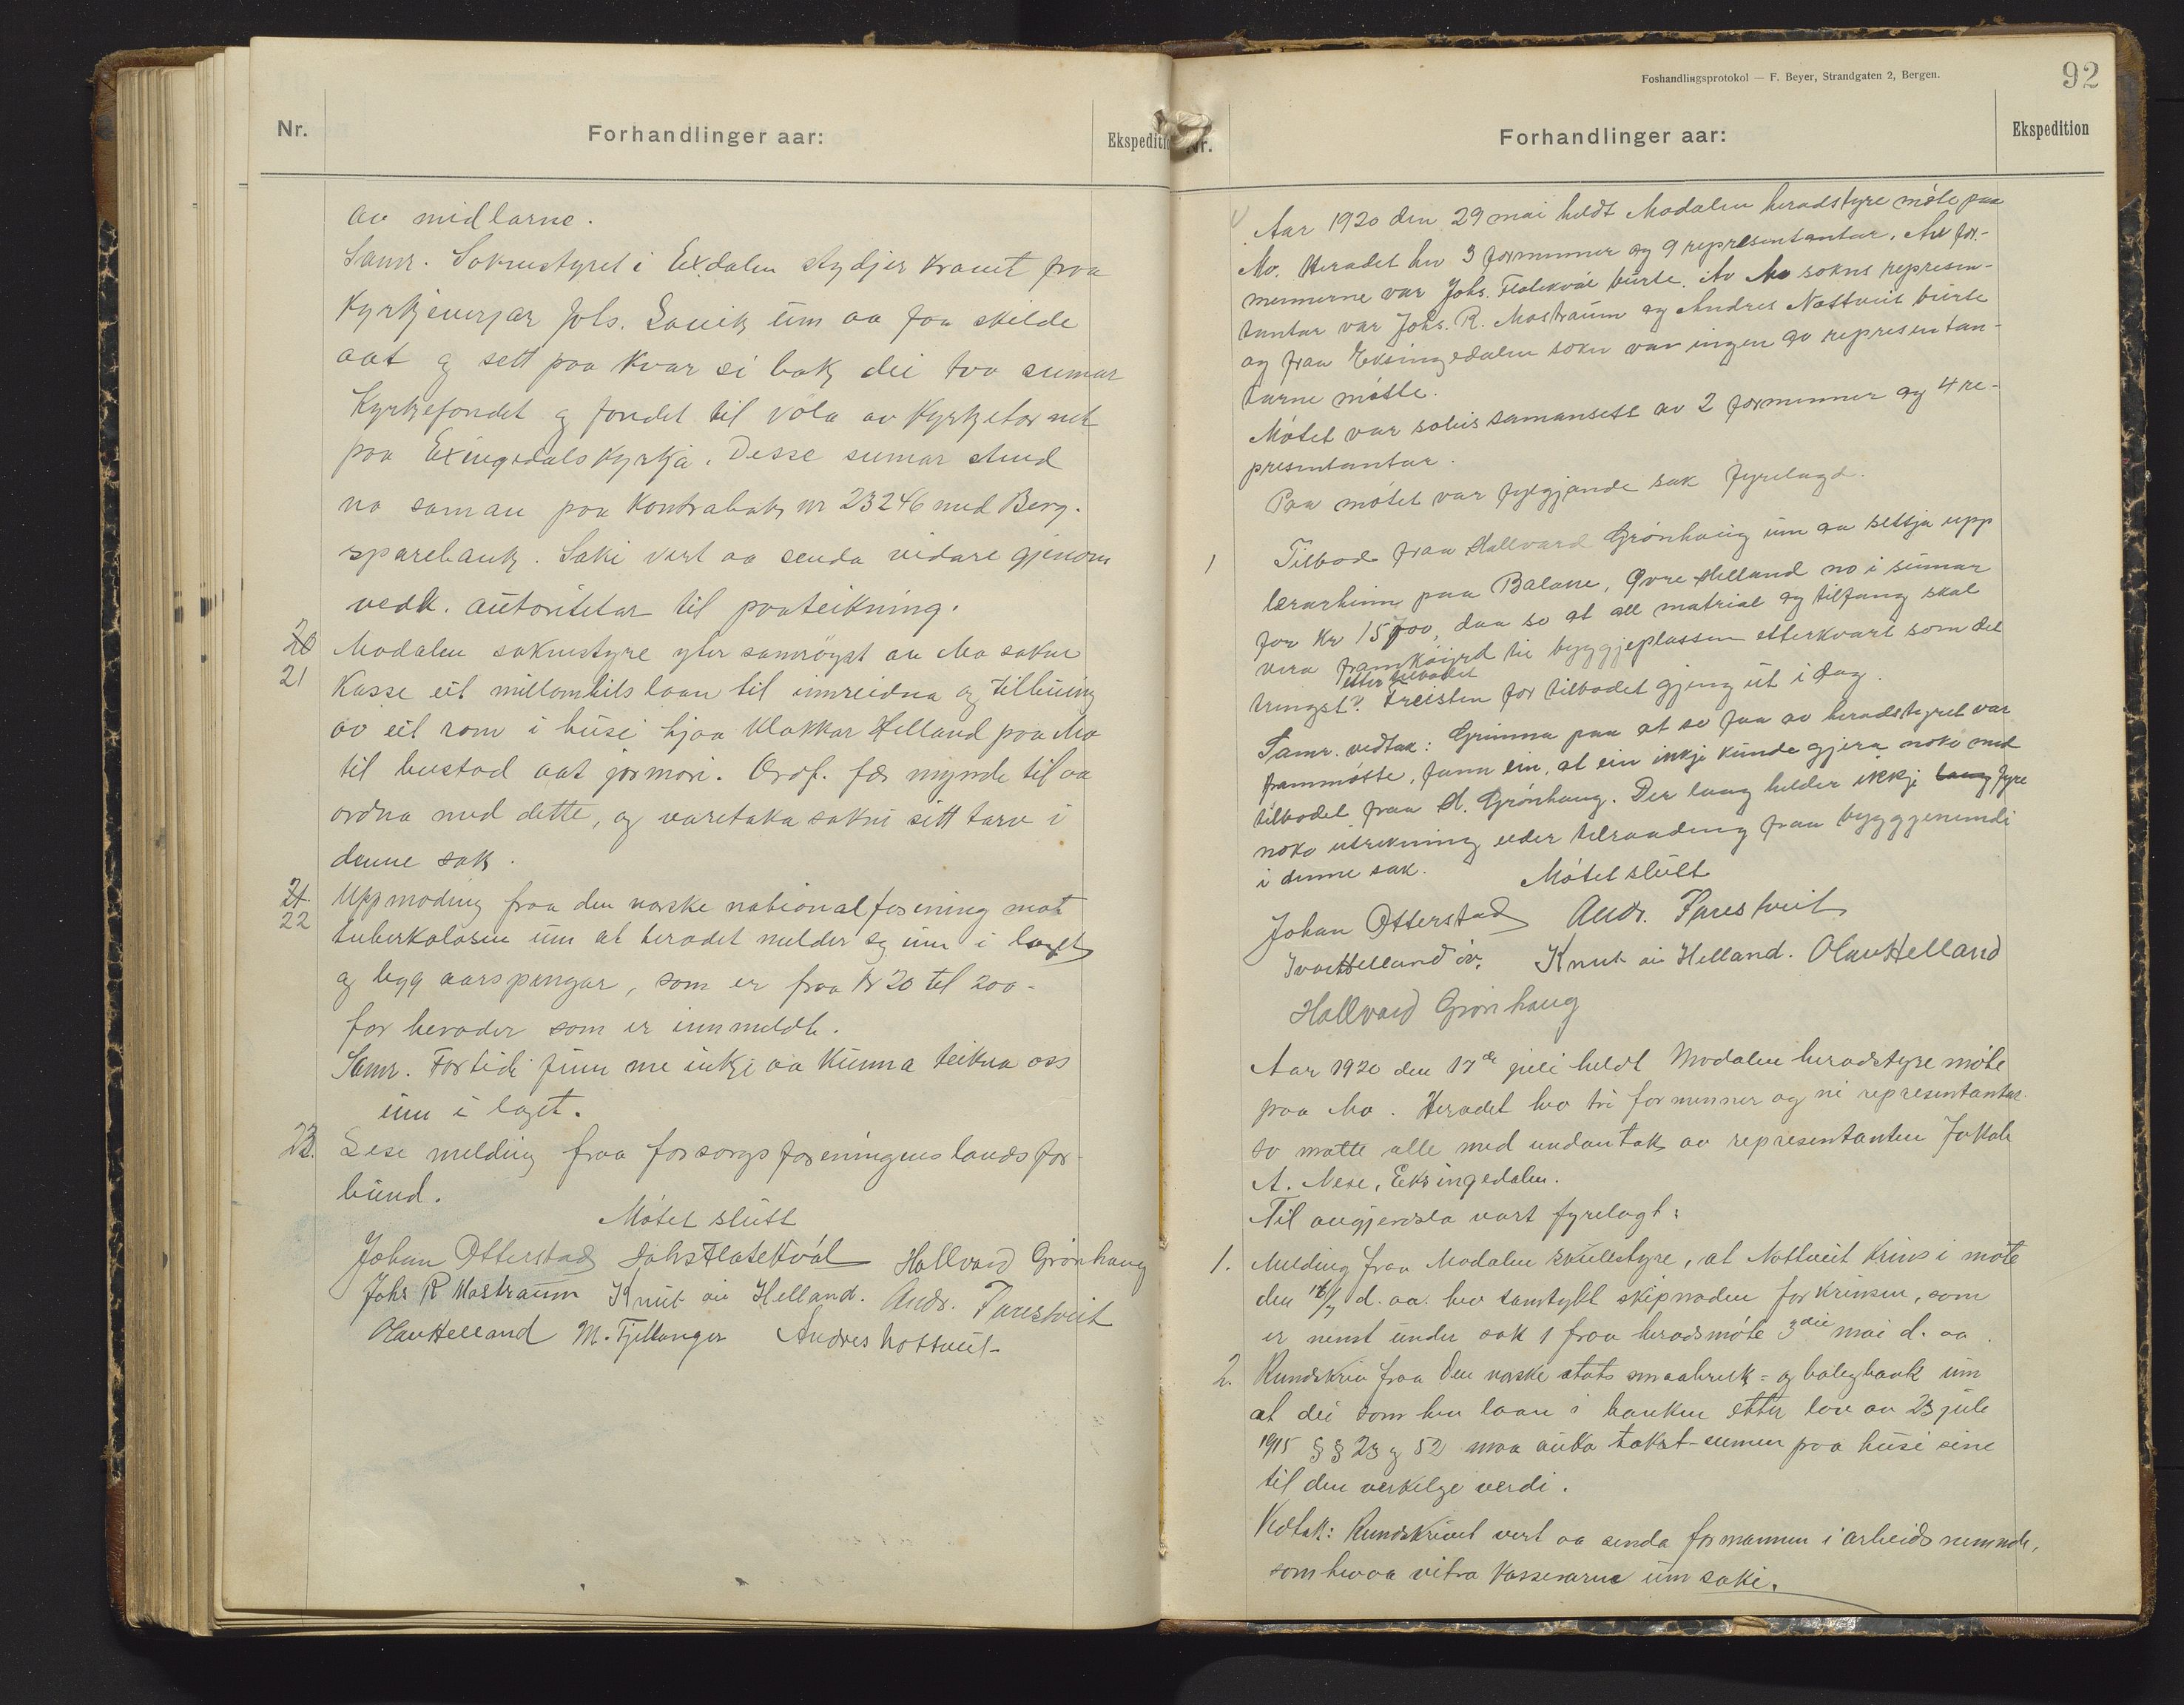 Nr.
Forhandlinger aar:
Ekspeditio
av midlarne.
Samr. Soknestyret i Exdalen stydjer kravet fraa
Kyrkjeverjar Johs. Lavik um aa faa skilde
aat og sett paa kvar si bok dei tvo sumar
Kyrkjefondet og fondet til vøla av Kyrkjetornet
paa Exingedals Kyrkja. Desse sumar stend
no saman paa Kontrabok nr 23246 med Berg.
sparebank. Saki vert aa senda vidare gjenom
vedk. autoritetar til paateikning.
20
21
Modalen soknestyre yter samrøyst av Mo sokne
Kasse eit millomhils laan til innreidna og tilbuing
av eit rom i husi hjaa Klokkar Helland paa Mo
til bustad aat jormori. Ordf. fær mynde til aa
ordna med dette, og varetaka sokni sitt tarv i
denne sak.
21.
22
Uppmoding fraa den norske nationalforening mot
tuberkolosen um at heradet melder seg inn i laget
og legg aarspengar, som er fraa Kr 20 til 200-
for herader som er innmeldt.
Samr. For tidi finn me inkje aa kunna teikna oss
inn i laget.
23.
Lese melding fraa forsorgsforeningens landsfor-
bund.
Møtet slutt
Johan Otterstad Johs Flatekvål Hallvard Grønhaug
Johs R Mostraum Knut ån Helland. Andr. Farestveit
Olav Helland M. Fjellanger Andres Nottveit-
Foshandlingsprotokol — F. Beyer, Strandgaten 2, Bergen.
92
Nr.
Forhandlinger aar:
Ekspedition
Aar 1920 den 29 mai heldt Modalen heradstyre møte paa
Mo. Heradet hev 3 formenner og 9 representantar. Av for-
mennerne var Johs. Flatekvål burte. Av Mo sokns represen-
tantar var Johs. R. Mostraum og Andres Nottveit burte
og fraa Eksingedalen sokn var ingen av representan-
tarne møtte.
Møtet var soleis samansett av 2 formenner og 4 re-
presentantar.
Paa møtet var fylgjande sak fyrelagd.
1
Tilbod fraa Hallvard Grønhaug um aa setja upp
lerarheim paa Balane, Øvre Helland no i sumar
for Kr 15700, daa so at all matrial og tilfang skal
vera framkøyrd til byggjeplassen etterkvart som det
etter tilbodet
trengst? Freisten for tilbodet gjeng ut i dag.
Samr. vedtak: Grunna paa at so faa av heradstyret var
frammøtte, fann ein, at ein inkje kunde gjera noko med
tilbodet fraa H. Grønhaug. Der laag helder ikkje laag fyre
noko utrekning elder tilraading fraa byggjenemdi
i denne sak.
Møtet slutt
Johan Otterstad Andr. Farestveit
Ivar Helland øv. Knut ån Helland. Olav Helland
Hallvard Grønhaug
Aar 1920 den 17de juli heldt Modalen heradstyre møte
paa Mo. Heradet hev tri formenner og ni representantar.
so møtte alle med undantak av representanten Jakob
A. Nese, Eksingedalen.
Til avgjerdsla vart fyrelagt:
1.
Melding fraa Modalen skulestyre, at Nottveit Krins i møte
den 16/7 d. aa. hev samtykt skipnaden for krinsen, som
er nemt under sak 1 fraa heradsmøte 3die mai d. aa.
2.
Rundskriv fraa Den norske stats smaabruk- og boligbank um
at dei som hev laan i banken etter lov av 23 jule
1915 §§ 23 og 52 maa auka takst-sumen paa husi sine
til den verkelge verdi.
Vedtak: Rundskrivet vert aa senda formannen i arbeidsnemndi,
som hev aa vitra Kasserarne um saki.